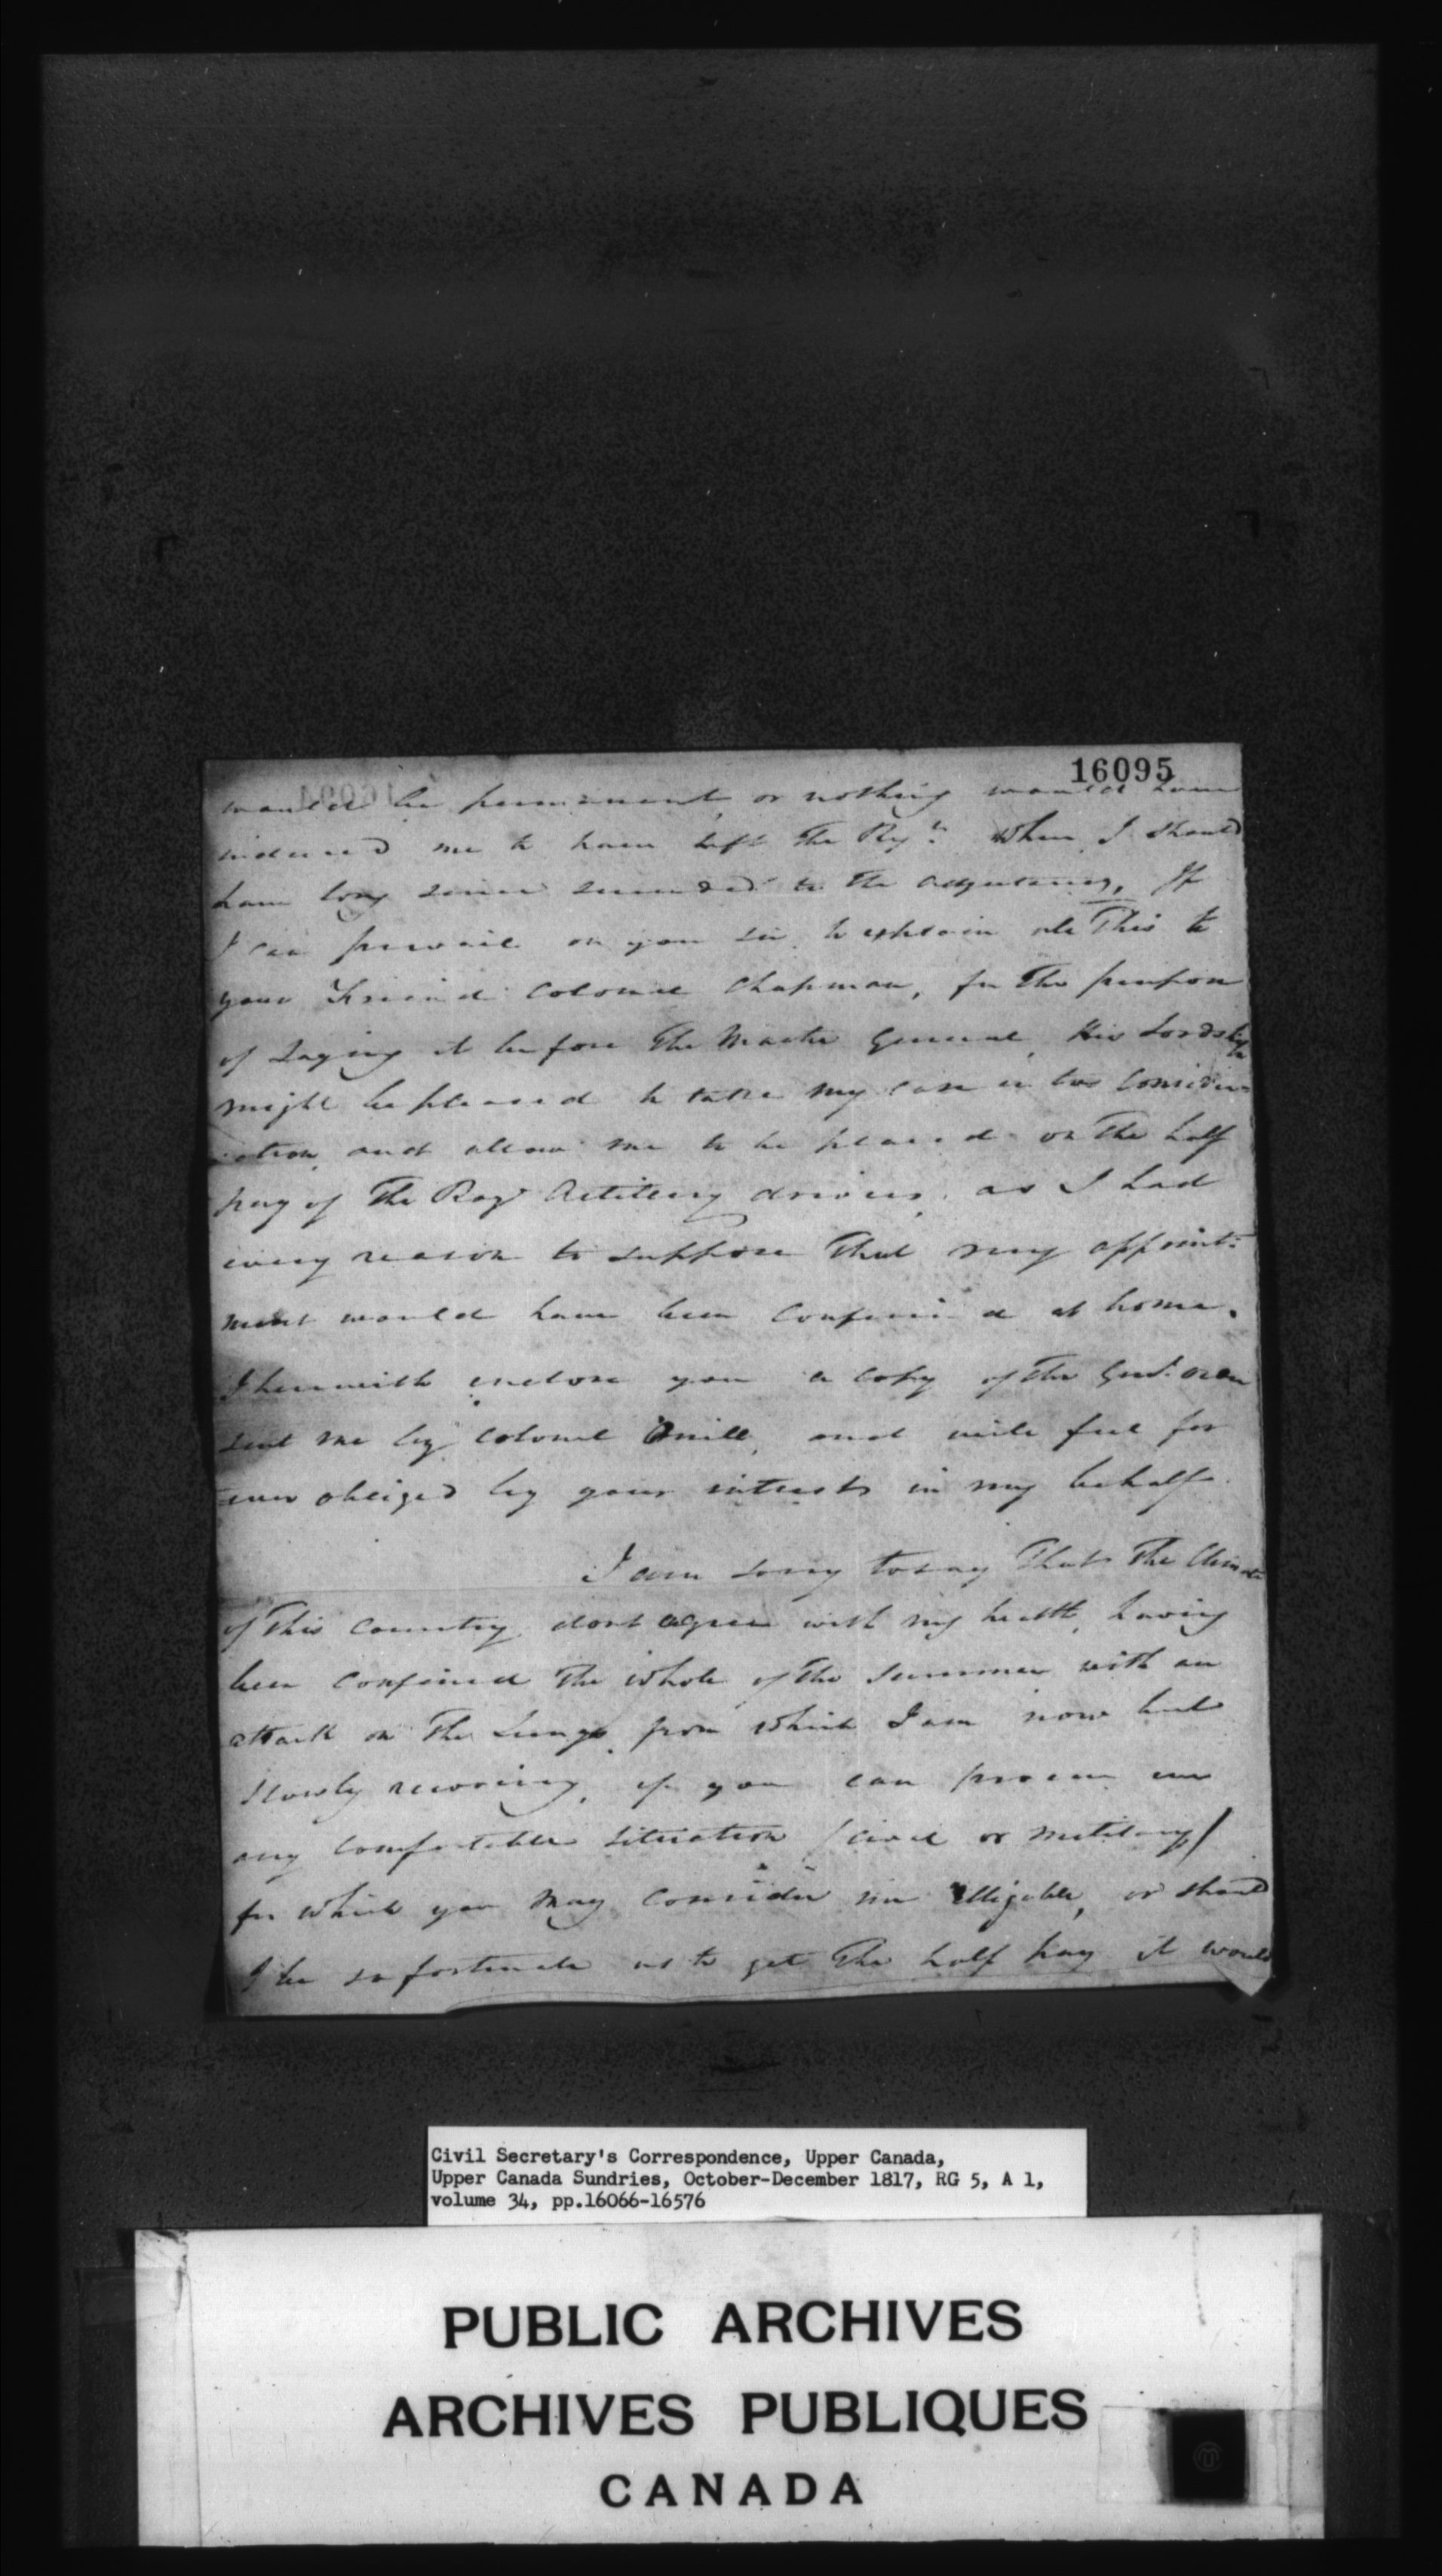 16095
would be permanent, or nothing would have
induced me to have left the Regt. when I should
have long since succeeded to the adjutancy, If
I can prevail on you sir to explain all This to
your Friend Colonel Chapman, for the purpose
of Laying it before The Master General, His Lordship
might be pleased to take my case in to consider-
ation, and allow me to be placed on the half
pay of The Royl Artillery drivers, as I had
every reason to suppose that my appoint-
ment would have been Confirmed at home.
I herewith enclose you a Copy of the Genl. order
sent me by Colonel and will feel for
ever obliged by your interest in my behalf.
I am sorry to say That The Climate
of This Country dont agree with my health, having
been Confined The whole of the Summer with an
attack on The Lungs, from which I am now but
slowly recovering, if you can procure me
any comfortable situation (civil or military)
for which you may Consider me elligible, or should
I be so fortunate as to get The half pay it would
Civil Secretary's Correspondence, Upper Canada,
Upper Canada Sundries, October-December 1817, RG 5, A 1,
volume 34, pp.16066-16576
PUBLIC ARCHIVES
ARCHIVES PUBLIQUES
CANADA